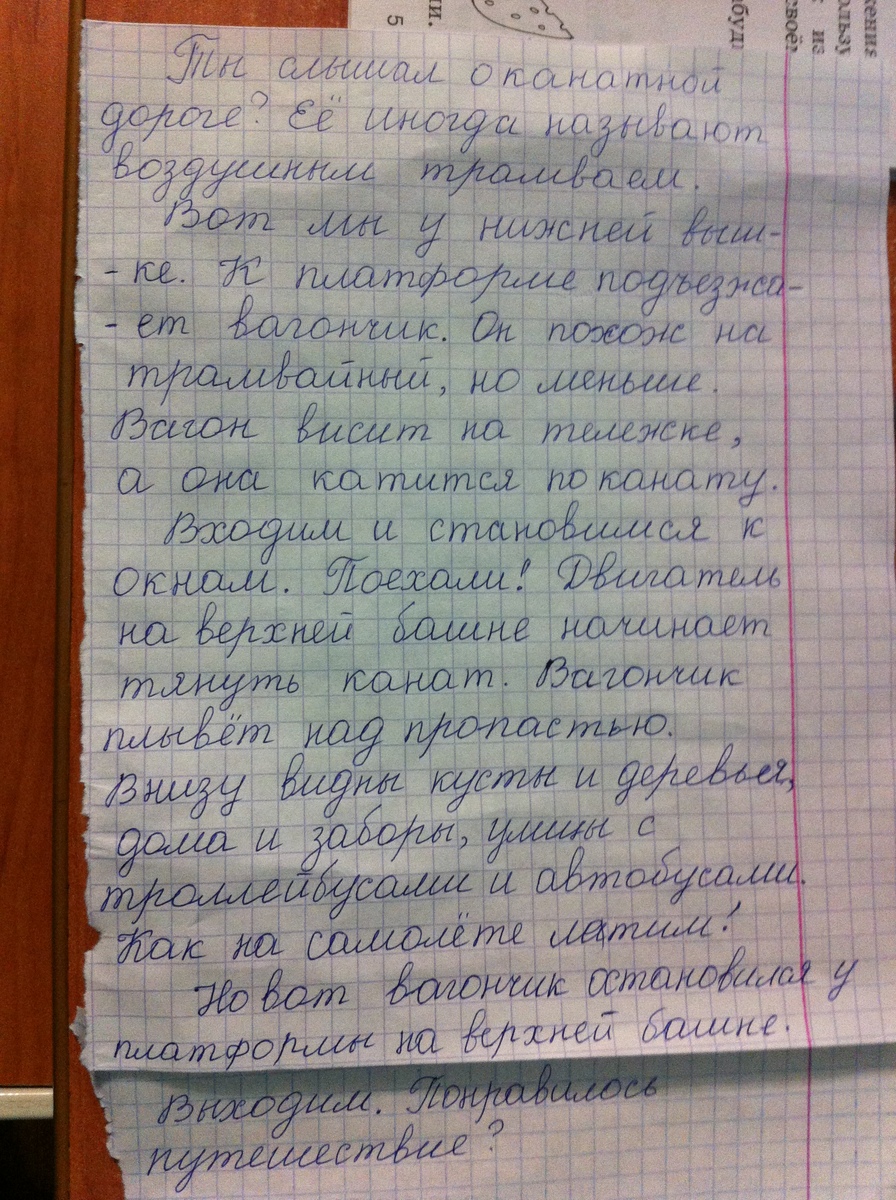 5
ли.
буд
своё
из
ользу
жения
Ты слышал о канатной
дороге? Её иногда называют
воздушным трамваем.
Вот мы у нижней выш-
-ке. К платформе подъезжа-
-ет вагончик. Он похож на
трамвайный, но меньше.
Вагон висит на тележке,
а она катится по канату.
Входим и становимся к
окнам. Поехали! Двигатель
на верхней башне начинает
тянуть канат. Вагончик
плывёт над пропастью.
Внизу видны кусты и деревья,
дома и заборы, улицы с
троллейбусами и автобусами.
Как на самолёте латим!
Но вот вагончик остановился у
платформы на верхней башне.
Выходим. Понравилось
путешествие?